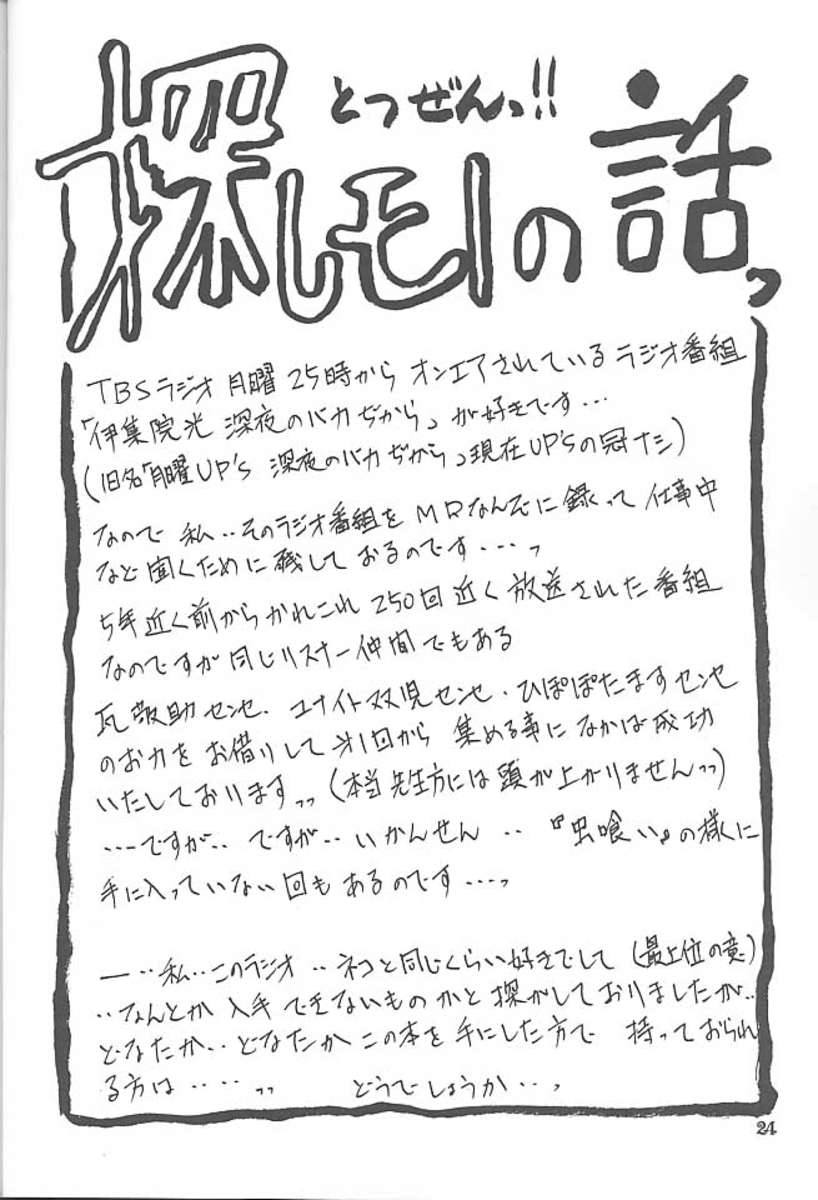 とつぜんっ!!
探しモノの話っ
TBSラジオ 月曜 25時から オンエアされているラジオ番組
「伊集院光 深夜のバカぢから」が好きです…
(旧名「月曜UP'S 深夜のバカぢから」現在UP'Sの冠ナシ)
なので 私‥そのラジオ番組を MDなんぞに録って 仕事中
など聞くために残しておるのです‥‥っ
5年近く前からかれこれ 250回近く放送された番組
なのですが同じリスナー仲間でもある
瓦敬助センセ、ユナイト双児センセ・ひぽぽたますセンセ
のお力をお借りして 才1回から 集める事になかば成功
いたしております〃(本当先生方には頭が上がりませんっっ)
‥‥ですが‥ですが‥いかんせん ‥『虫喰い』の様に
手に入っていない回もあるのです‥‥っ
ー‥私‥このラジオ‥ネコと同じくらい好きでして(最上位の意)
‥なんとか 入手できないものかと探がしておりましたが‥
どなたか‥どなたかこの本を手にした方で 持っておられ
る方は‥‥っっ どうでしょうか‥っ
24